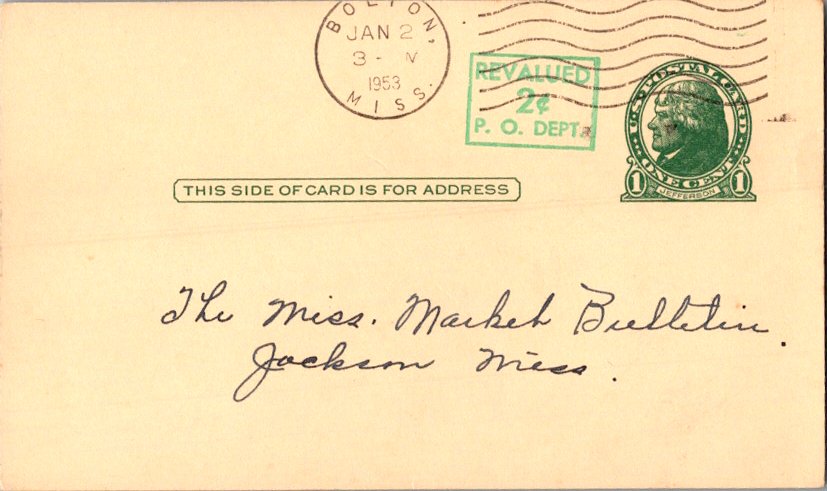 BOLTON,
JAN 2
3 -
1953
MISS.
REVALUED
2¢
P. O. DEPT.
U.S. POSTAL CARD
ONE CENT
1 JEFFERSON 1
THIS SIDE OF CARD IS FOR ADDRESS
The Miss. Market Bulletin
Jackson Miss.